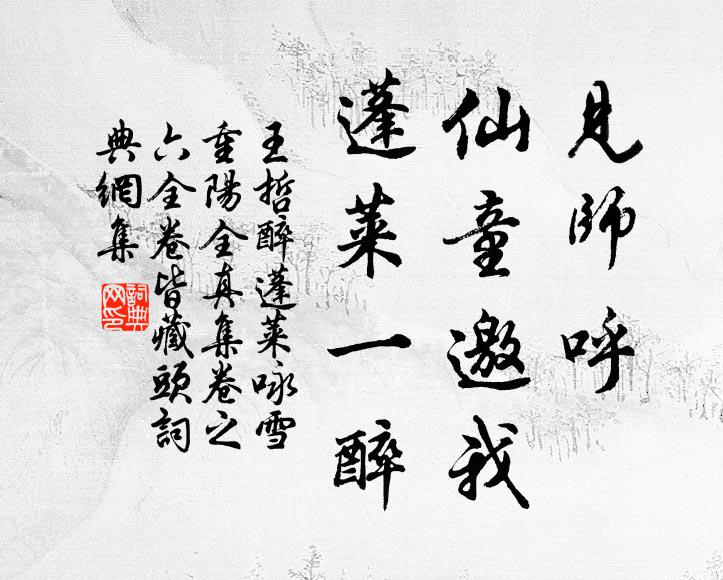 見師呼
仙童邀我
蓬萊一醉
王哲醉蓬萊咏雪
重陽全真集卷之
六全卷皆藏頭詞
典網集
詞典
网印